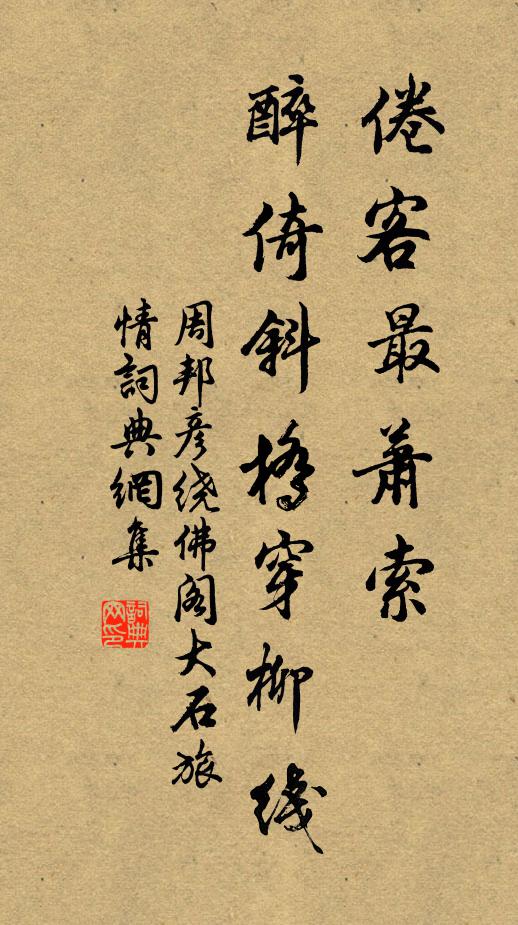 倦客最萧索
醉倚斜橋穿柳线
周邦彦绕佛阁大石旅
情詞典網集
詞典
网印